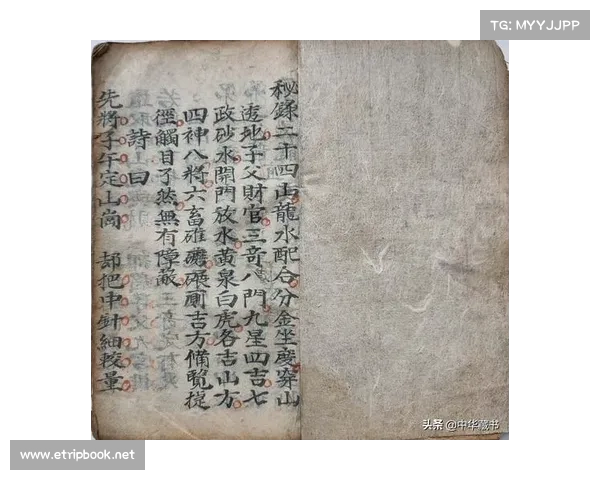 TG: MYYJJPP
秘錄二十四山龍水配合分金坐度穿山
透地子父財官三奇八門九星四吉七
政砂水開門放水黃泉白虎各吉山方
四神八將六畜碓磑碾廁吉方備覽捷
徑觸目了然無有障蔽
詩曰
先將子午定山崗 却把中針細較量
头条 @中华藏书
www.etripbook.net